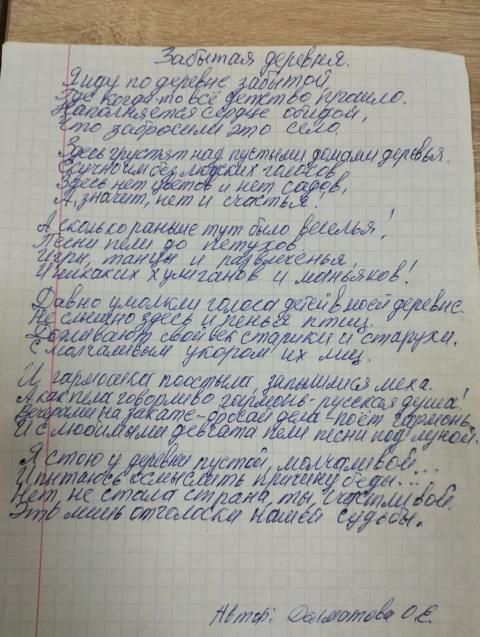 Забытая деревня.
Я иду по деревне забытой,
Где когда-то всё детство прошло.
Наполняется сердце обидой,
Что забросили это село.
Здесь грустят над пустыми домами деревья.
Скучно им без людских голосов,
Здесь нет цветов и нет садов,
А значит, нет и счастья!
А сколько раньше тут было веселья!
Песни пели до петухов,
Игры, танцы и развлеченья,
И никаких хулиганов и маньяков!
Давно умолкли голоса детей в моей деревне.
Не слышно здесь и пенья птиц.
Доживают свой век старики и старухи.
С молчаливым укором их лиц.
И гармошка поостыла, запылились меха.
А как пела говорливо гармонь - русская душа!
Вечерами на закате - бросай дела - поёт гармонь.
И с любимыми девчата пели песни под луной.
Я стою у деревни пустой, молчаливой...
И пытаюсь осмыслить причину беды...
Нет, не стала страна, ты, счастливой.
Это лишь отголоски нашей судьбы.
Автор: Долматова О.Е.